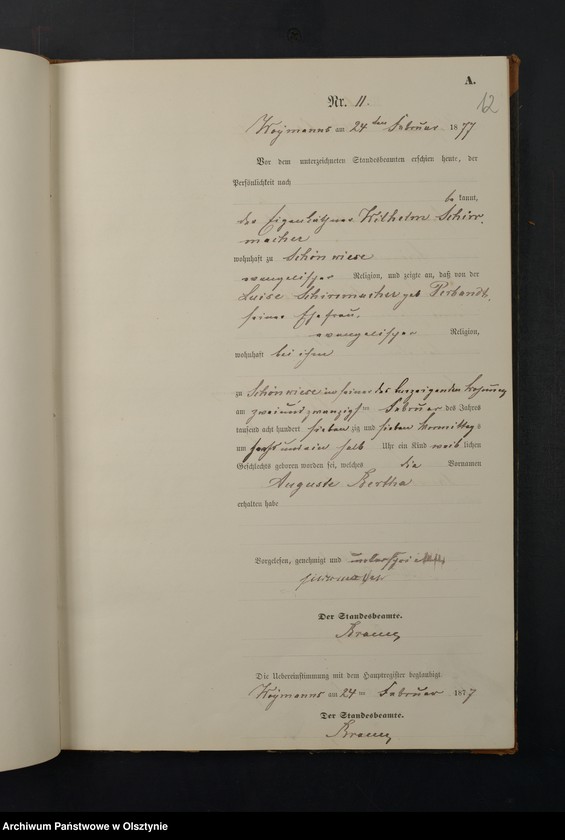 A.
12
Nr. 11.
Woymanns am 24 ten Februar 1877
Vor dem unterzeichneten Standesbeamten erschien heute, der
Persönlichkeit nach
be kannt,
der Eigenkäthner Wilhelm Schirr-
macher
wohnhaft zu Schönwiese
evangelischer Religion, und zeigte an, daß von der
Luise Schirrmacher geb. Perbandt,
seiner Ehefrau,
evangelischer Religion,
wohnhaft bei ihm
zu Schönwiese in seiner des Anzeigenden Wohnung
am zweiundzwanzigsten Februar des Jahres
tausend acht hundert siebenzig und sieben Vormittags
um sechs und ein halb Uhr ein Kind weiblichen
Geschlechts geboren worden sei, welches die Vornamen
Auguste Bertha
erhalten habe
Vorgelesen, genehmigt und
Der Standesbeamte.
Die Uebereinstimmung mit dem Hauptregister beglaubigt
Woymanns am 24 ten Februar 1877
Der Standesbeamte.
Archiwum Państwowe w Olsztynie